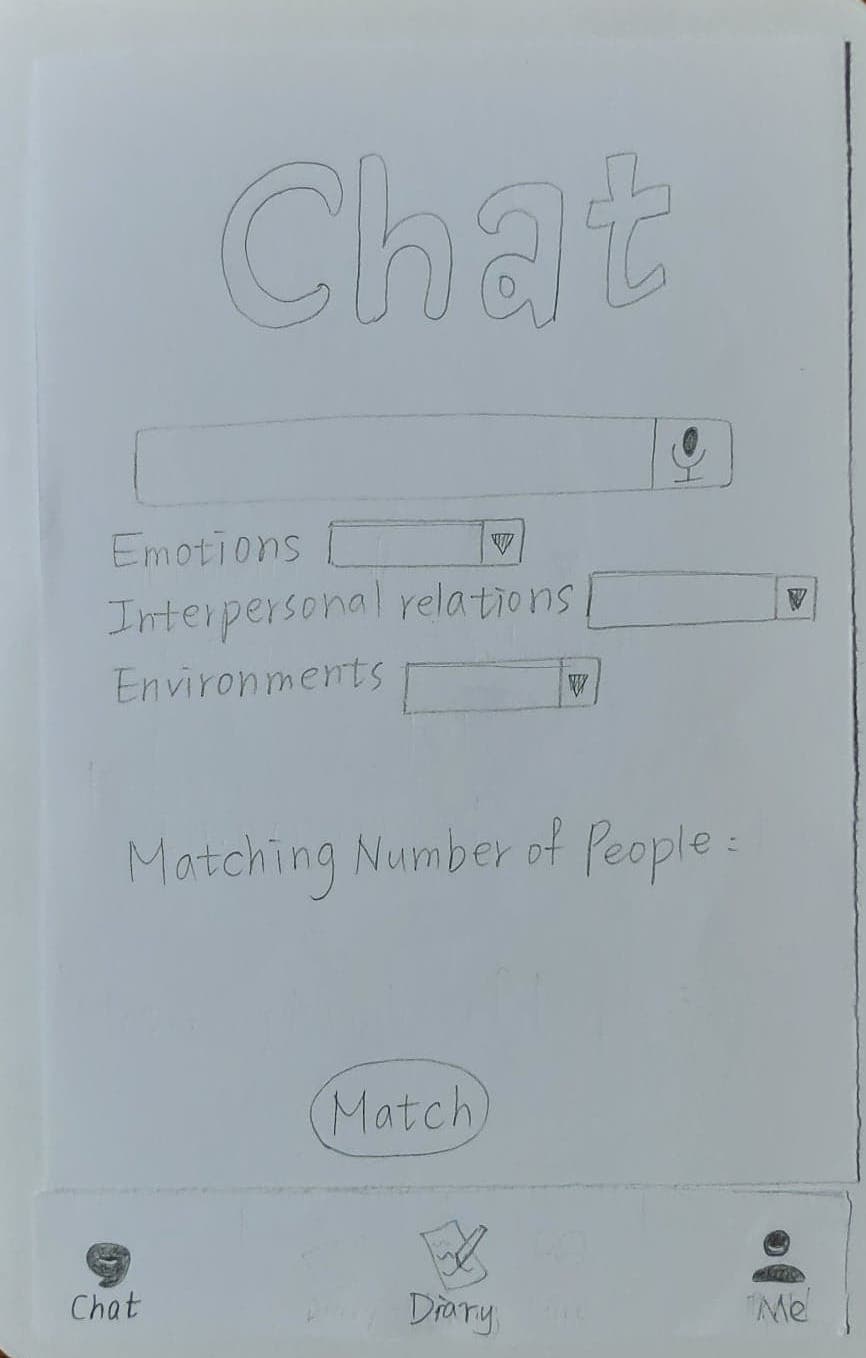 Chat
Emotions
Interpersonal relations
Environments
Matching Number of People :
Match
Chat
Diary
Me